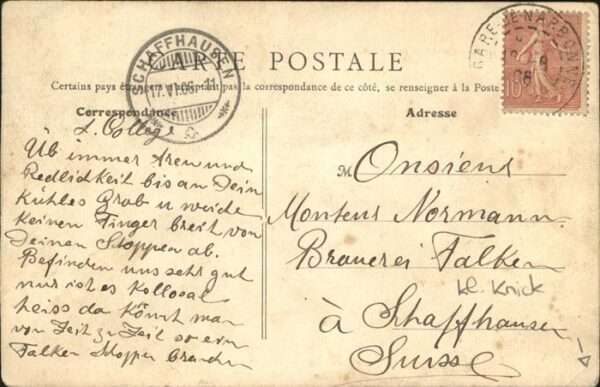 CARTE POSTALE
Certains pays étrangers n'acceptant pas la correspondance de ce côté, se renseigner à la Poste
Correspondance
L. College
Üb immer Treu und
Redlichkeit bis an Dein
Kühles Grab u weiche
keinen Finger breit von
Deinen Stoppen ab.
Befinden uns sehr gut
nur ist es kollosal
heiss da könnt man
von Zeit zu Zeit so ein
Falken Stoppen brauchen
Adresse
M Onsieur
Monteur Normann
Brauerei Falken
kl. Knick
à Schaffhausen
Suisse
SCHAFFHAUSEN
17.VI.06. 11
GARE DE NARBONNE
06
10